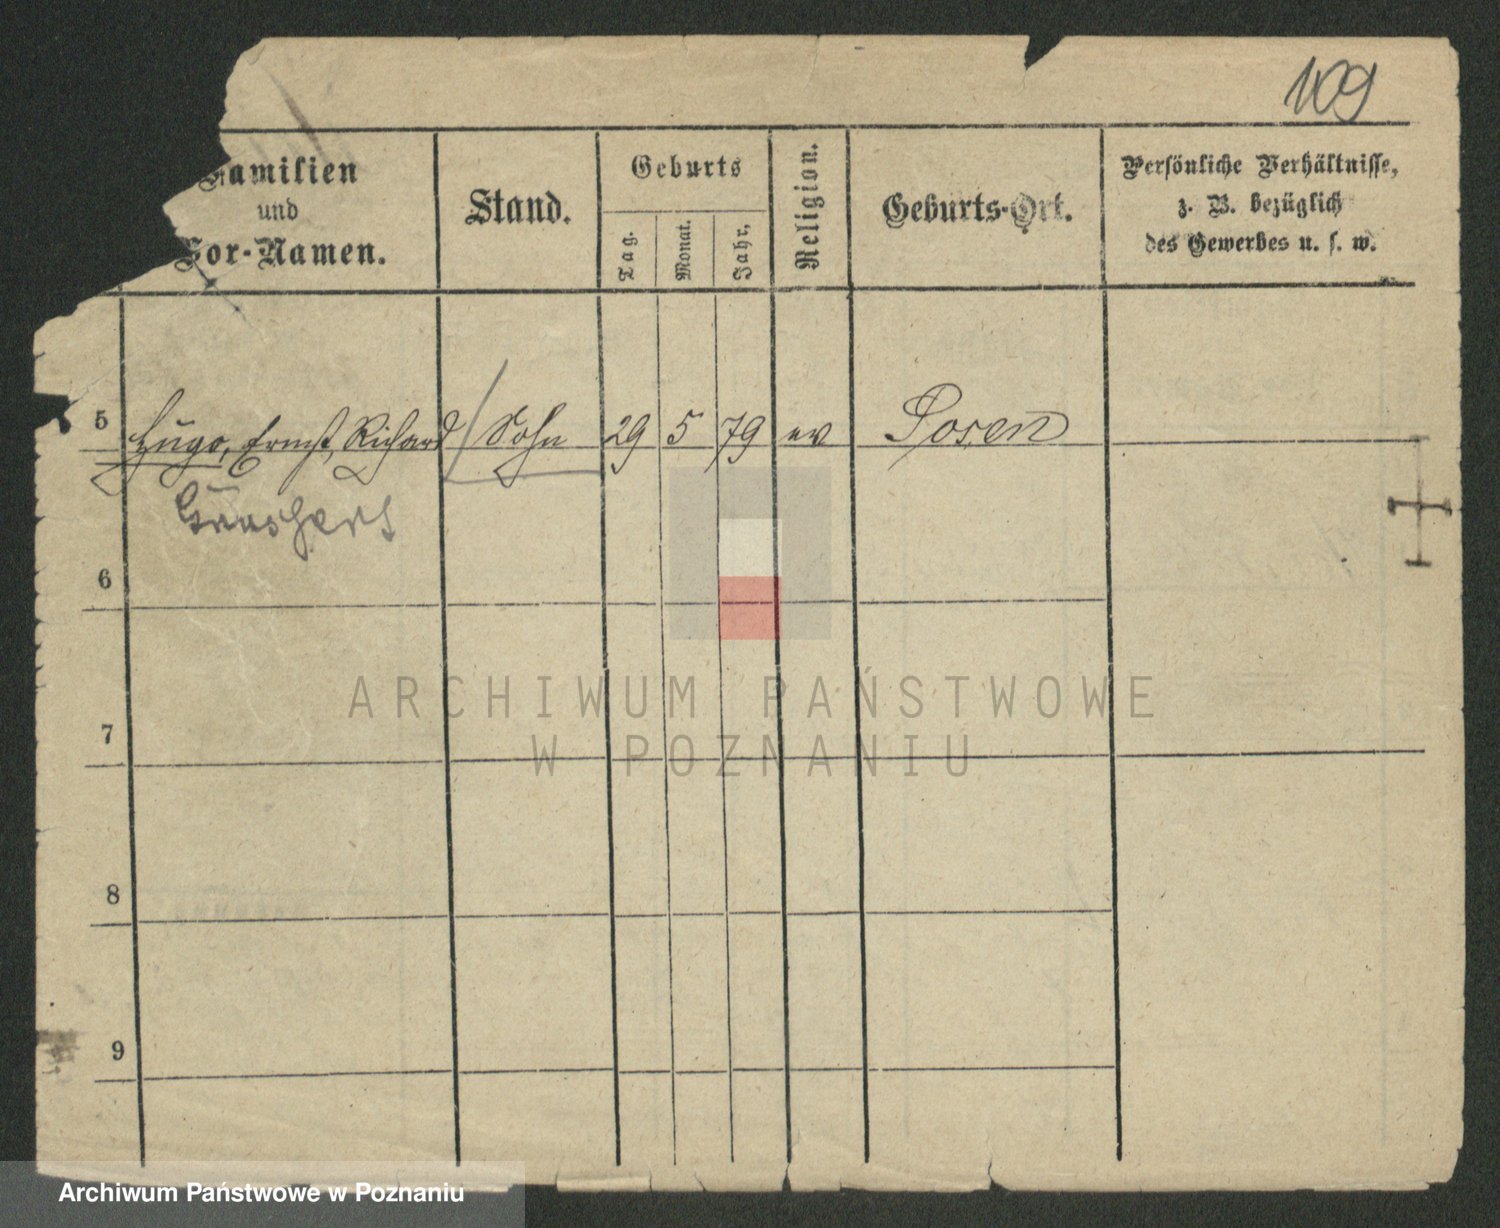 109
Familien
und
Vor-Namen.
Stand.
Geburts
Tag.
Monat.
Jahr,
Religion.
Geburts-Ort.
Persönliche Verhältnisse,
z. B. bezüglich
des Gewerbes u. s. w.
5 Hugo, Ernst, Richard Sohn 29 5 79 ev Posen
6
7
8
9
ARCHIWUM PAŃSTWOWE
W POZNANIU
Archiwum Państwowe w Poznaniu